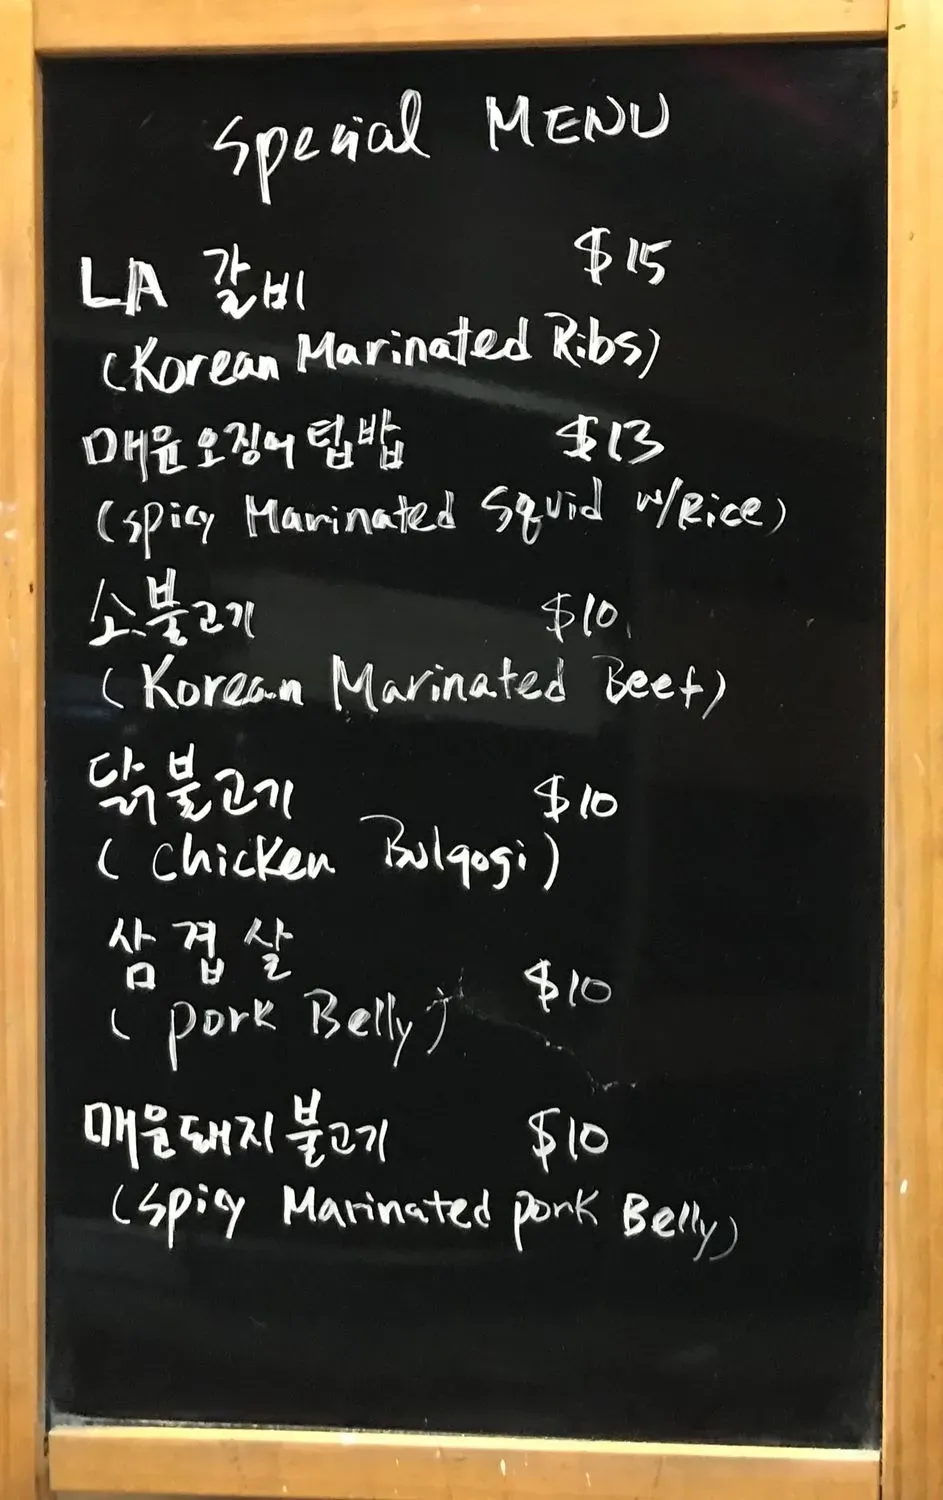 Special MENU
LA 갈비 $15
(Korean Marinated Ribs)
매운오징어텁밥 $13
(Spicy Marinated Squid w/Rice)
소불고기 $10
(Korean Marinated Beef)
닭불고기 $10
(Chicken Bulgogi)
삼겹살 $10
(pork Belly)
매운돼지불고기 $10
(Spicy Marinated pork Belly)